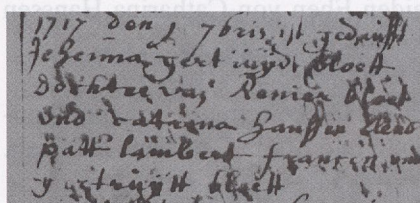 1717 den 1 7bris ist gedaufft
Jehenna gertruydt bloett
dochter van Renier bloet
und Catrina Hanssen
patt lambert francissen und
gertruytt bloett